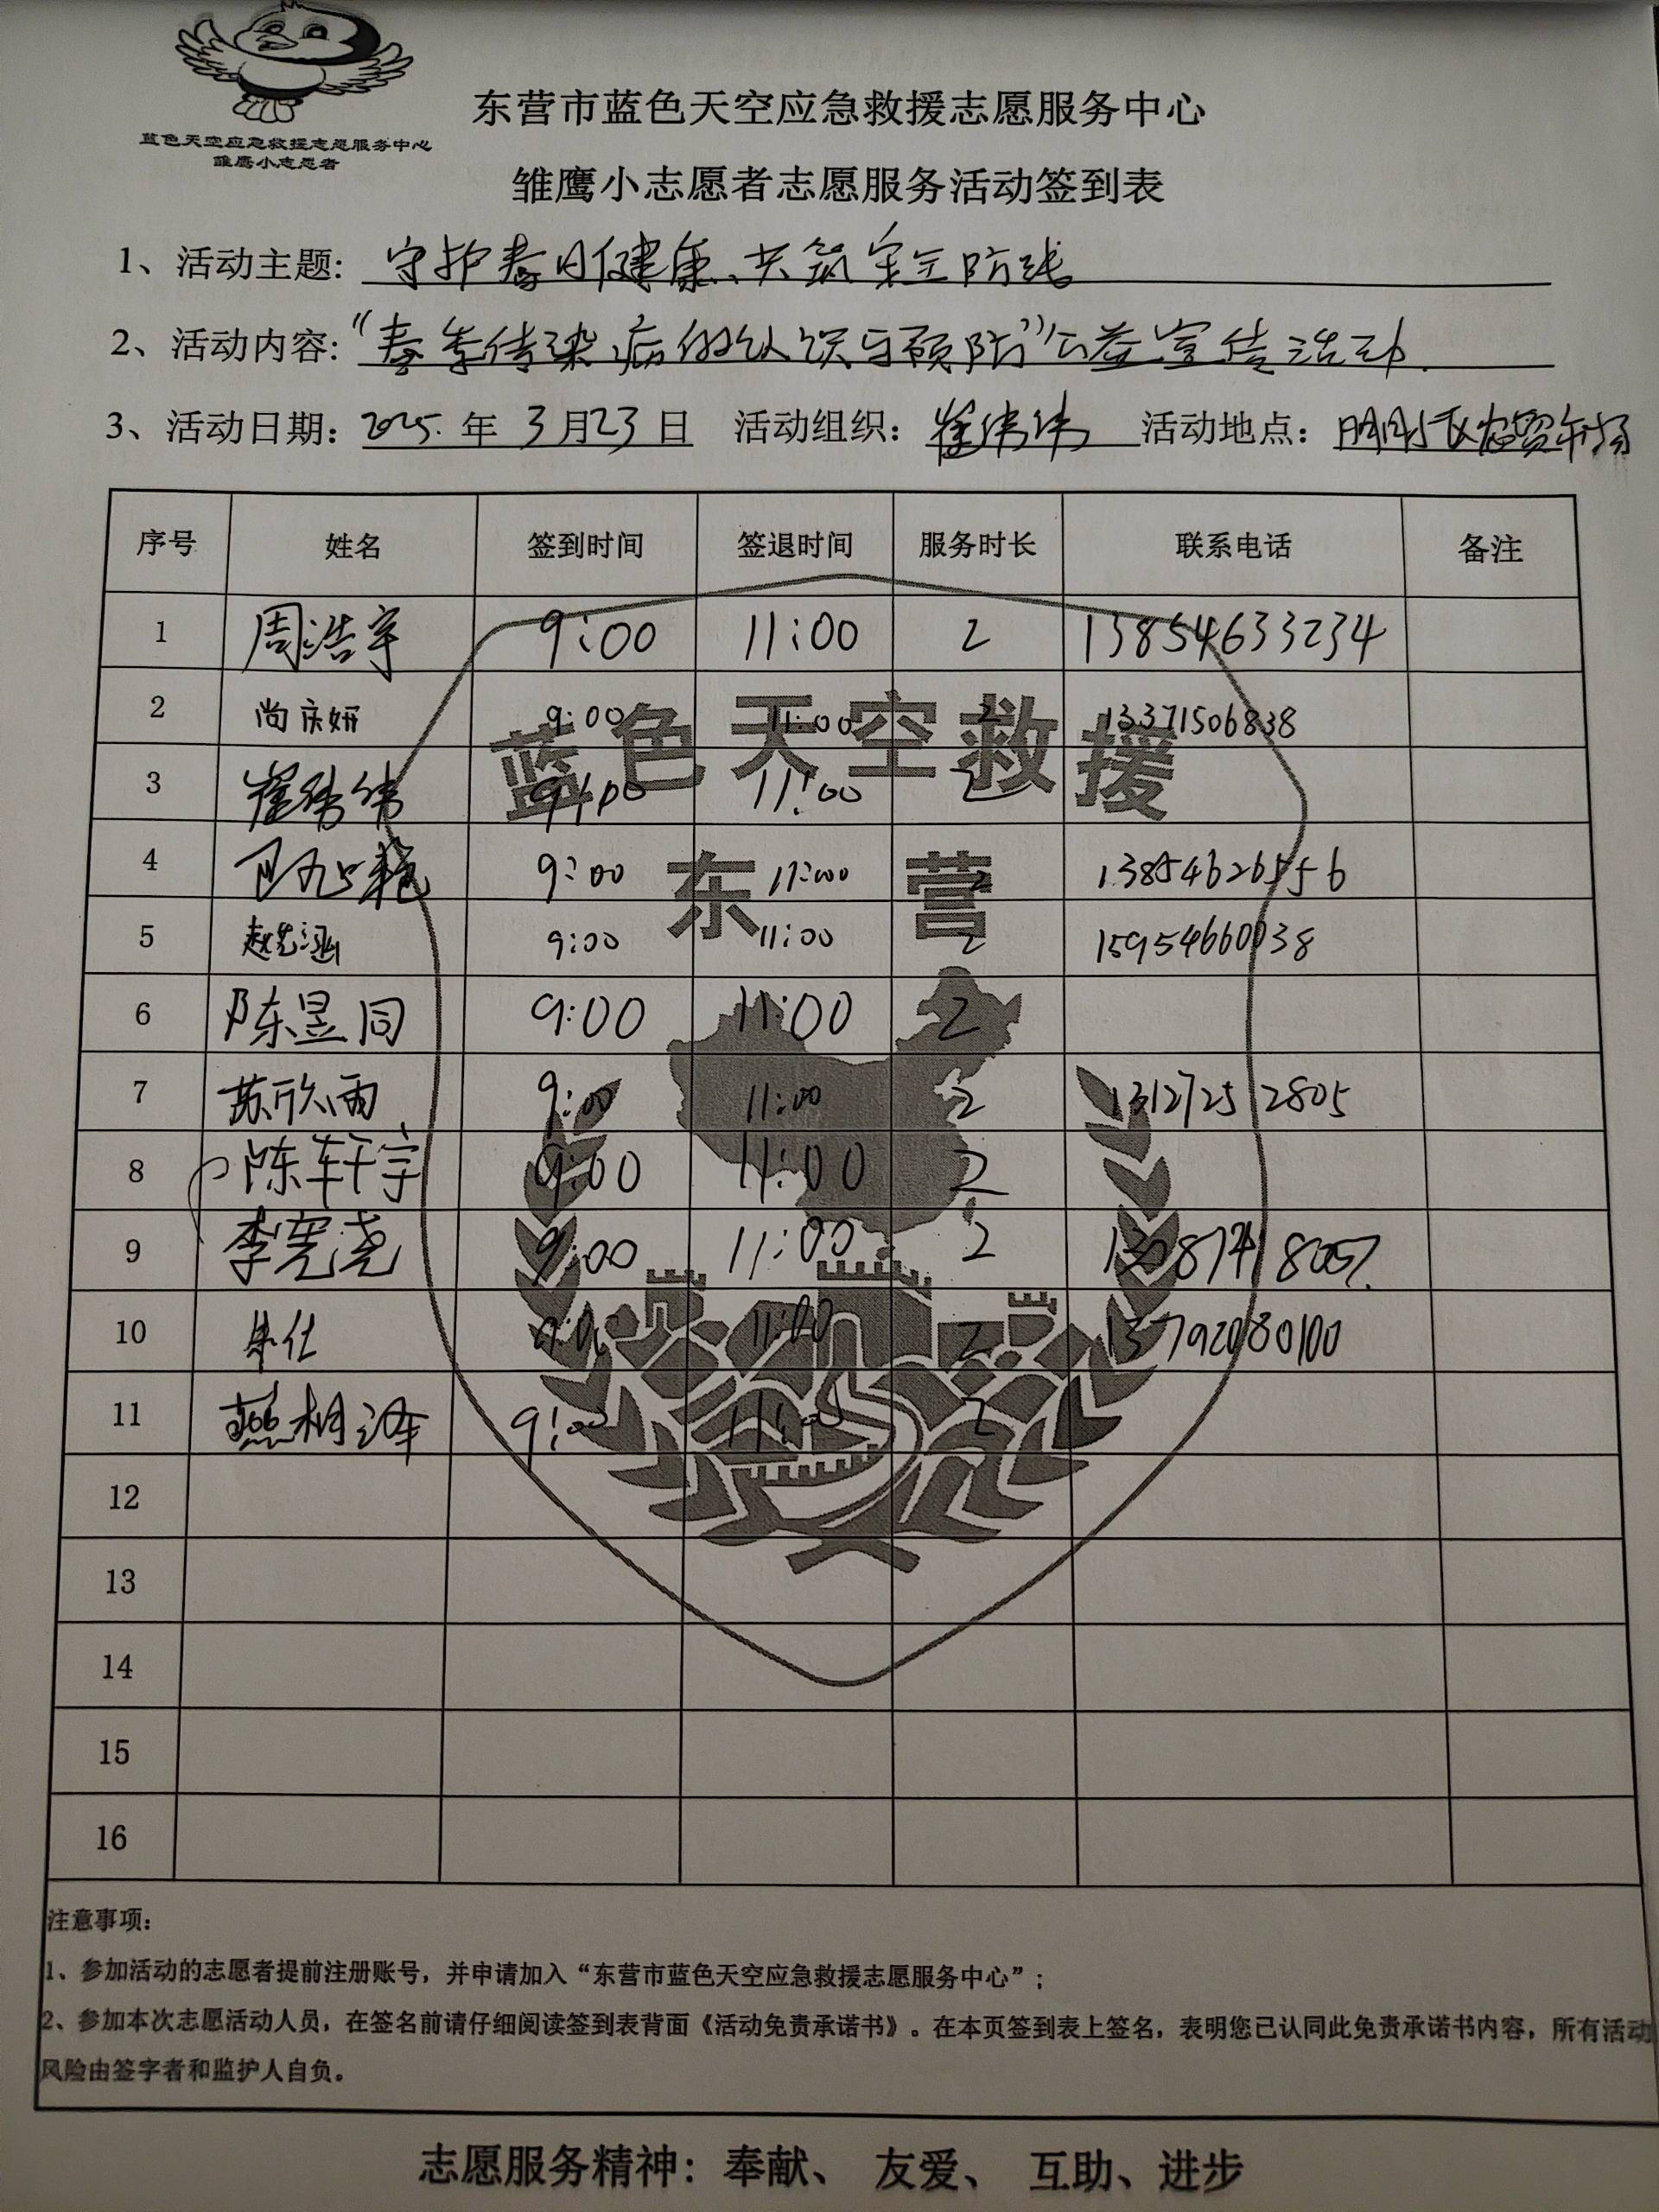 蓝色天空应急救援志愿服务中心
雏鹰小志愿者
东营市蓝色天空应急救援志愿服务中心
雏鹰小志愿者志愿服务活动签到表
1、活动主题: 守护春日健康、共筑安全防线
2、活动内容: “春季传染病的认识与预防”公益宣传活动.
3、活动日期: 2025.年 3月23日 活动组织: 崔伟伟 活动地点: 农贸市场
序号 姓名 签到时间 签退时间 服务时长 联系电话 备注
1 周浩宇 9:00 11:00 2 13854633234
2 尚庆妍 9:00 11:00 2 13371506838
蓝色天空救援
3 崔伟伟 9:00 11:00 2
4 9:00 11:00 2 13854626556
东营
5 赵艺涵 9:00 11:00 2 15954660038
6 陈昱同 9:00 11:00 2
7 苏欣雨 9:00 11:00 2 13127252805
8 陈轩宇 9:00 11:00 2
9 李宪尧 9:00 11:00 2
10 朱仕 9:00 11:00 2 13792080100
11 燕相泽 9:00 11:00 2
12
13
14
15
16
注意事项:
1、参加活动的志愿者提前注册账号，并申请加入“东营市蓝色天空应急救援志愿服务中心”；
2、参加本次志愿活动人员，在签名前请仔细阅读签到表背面《活动免责承诺书》。在本页签到表上签名，表明您已认同此免责承诺书内容，所有活动
风险由签字者和监护人自负。
志愿服务精神: 奉献、 友爱、 互助、进步